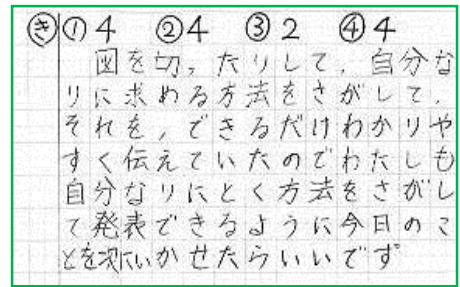 き ①4 ②4 ③2 ④4
図を切ったりして、自分な
りに求める方法をさがして、
それを、できるだけわかりや
すく伝えていたのでわたしも
自分なりにとく方法をさがし
て発表できるように今日のこ
とを次にいかせたらいいです。